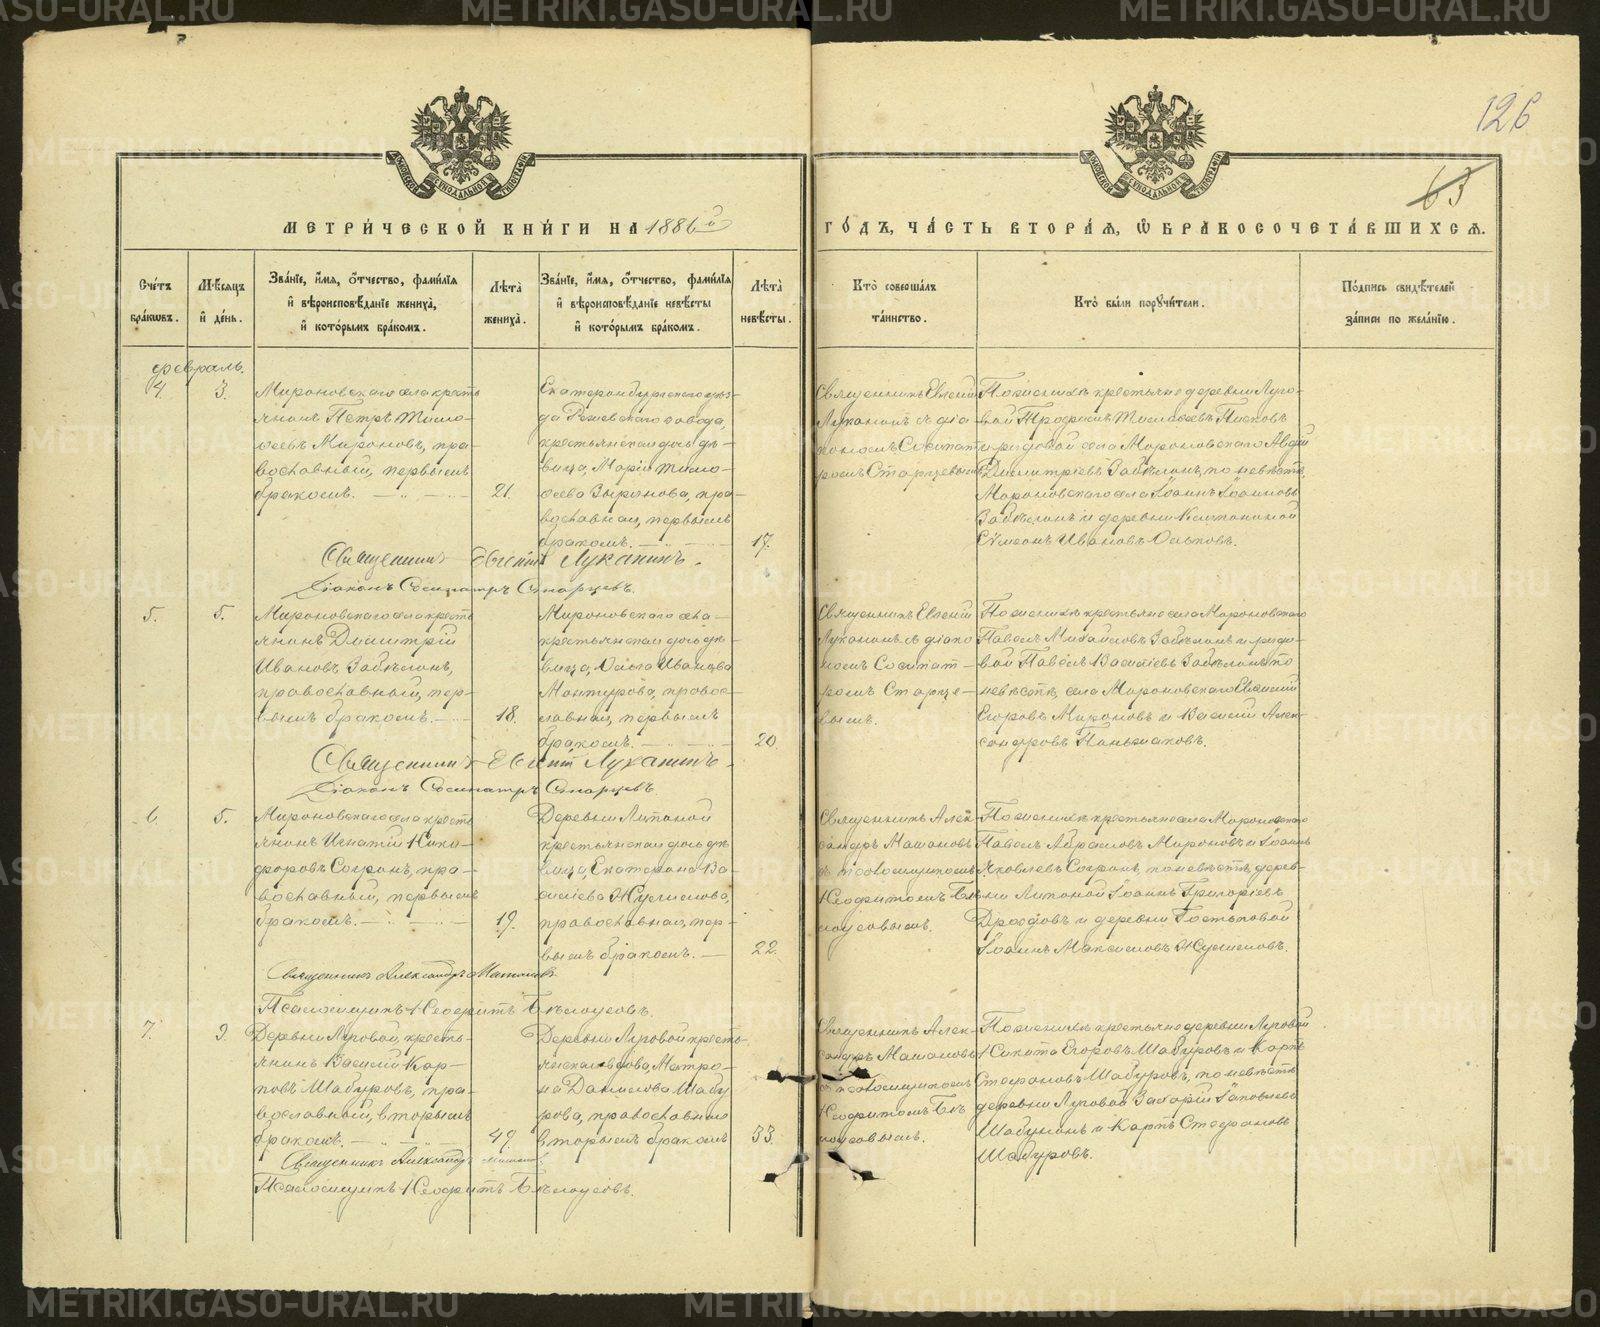 126
63
МЕТРИ́ЧЕСКОЙ КНИ́ГИ НА 1886й
ГО́ДЪ, ЧА́СТЬ ВТОРА́Я, Ѡ БРАКОСОЧЕТА́ВШИХСЯ.
Сче́тъ
бра́кѡвъ.
Мѣ́сяцъ
и де́нь.
Зва́ніе, и́мя, о́тчество, фами́лія
и вѣроисповѣ́даніе жениха̀,
и кото́рымъ бра́комъ.
Лѣта̀
жениха̀.
Зва́ніе, и́мя, о́тчество, фами́лія
и вѣроисповѣ́даніе невѣ́сты
и кото́рымъ бра́комъ.
Лѣта̀
невѣ́сты.
Кто̀ соверша́лъ
та́инство.
Кто̀ бы́ли поручи́тели.
По́дпись свидѣ́телей
за́писи по жела́нію.
Февраль.
4.
3.
Мироновскаго села кресть
янинъ Петръ Тимо-
ѳеевъ Мироновъ, пра-
вославный, первымъ
бракомъ.
21.
Екатеринбургскаго уѣз-
да Режевскаго завода,
крестьянская дочь дѣ-
вица, Марія Тимо-
ѳеева Зырянова, пра-
вославная, первымъ
бракомъ.
17.
Священникъ Евгеній
Луканинъ съ діа
кономъ Сосипат
ромъ Старцевымъ
По женихѣ крестьяне деревни Луго-
вой Трофимъ Тимоѳеевъ
и рядовой села Мироновскаго
Димитріевъ Забѣлинъ, по невѣстѣ,
Мироновскаго села Іоаннъ Іоанновъ
Забѣлинъ и деревни
Сѵмеонъ Ивановъ
Священникъ Евгеній Луканинъ.
Діаконъ Сосипатръ Старцевъ.
5.
5.
Мироновскаго села кресть
янинъ Димитрій
Ивановъ Забѣлинъ,
православный, пер-
вымъ бракомъ.
18.
Мироновскаго села
крестьянская дочь дѣ-
вица, Ольга Иванова
Мантурова, правос-
лавная, первымъ
бракомъ.
20.
Священникъ Евгеній
Луканинъ съ діако
номъ Сосипат-
ромъ Старце-
вымъ.
По женихѣ крестьяне села Мироновскаго
Павелъ Михайловъ Забѣлинъ и рядо-
вой Павелъ Василіевъ Забѣлинъ, по
невѣстѣ, села Мироновскаго Евгеній
Егоровъ Мироновъ и Василій Алек-
сандровъ Паньшаковъ.
Священникъ Евгеній Луканинъ.
Діаконъ Сосипатръ Старцевъ
6.
5.
Мироновскаго села кресть
янинъ Игнатій Ники-
форовъ Согринъ, пра-
вославный, первымъ
бракомъ.
19.
Деревни Липиной
крестьянская дочь дѣ
вица, Екатерина Ва-
силіева Жуслинова,
православная, пер-
вымъ бракомъ.
22.
Священникъ Алек-
сандръ Машановъ
съ псаломщикомъ
Неофитомъ Бѣ
лоусовымъ.
По женихѣ крестьяне села Мироновскаго
Павелъ Абрамовъ Мироновъ и Іоаннъ
Яковлевъ Согринъ, по невѣстѣ, дерев-
ни Липиной Іоаннъ Григоріевъ
Дроздовъ и деревни Гостьковой
Іоаннъ Максимовъ
Священникъ Александръ Машановъ
Псаломщикъ Неофитъ Бѣлоусовъ.
7.
9.
Деревни Луговой, кресть-
янинъ Василій Кар-
повъ Шабуровъ, пра-
вославный, вторымъ
бракомъ.
49.
Деревни Луговой кресть-
янская вдова, Матро-
на Данилова Шабу
рова, православная
вторымъ бракомъ
33.
Священникъ Алек-
сандръ Машановъ
съ псаломщикомъ
Неофитомъ Бѣ
лоусовымъ.
По женихѣ крестьяне деревни Луговой
Никита Егоровъ Шабуровъ и Карпъ
Стефановъ Шабуровъ, по невѣстѣ
деревни Луговой Захарій
Шабунинъ и Карпъ Стефановъ
Шабуровъ.
Священникъ Александръ Машановъ
Псаломщикъ Неофитъ Бѣлоусовъ.
METRIKI.GASO-URAL.RU